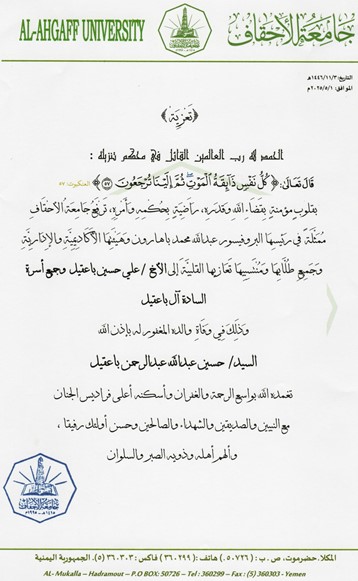 AL-AHGAFF UNIVERSITY
جامعة الأحقاف
التاريخ: ١٤٤٦/١١/٣هـ
الموافق: ٢٠٢٥/٥/١م
﴿تعزية﴾
الحمد لله رب العالمين القائل في محكم تنزيله :
قَالَ تَعَالَىٰ: ﴿ كُلُّ نَفْسٍ ذَائِقَةُ الْمَوْتِ ثُمَّ إِلَيْنَا تُرْجَعُونَ ٥٧ ﴾ العنكبوت: ٥٧
بقلوب مؤمنة بقضاء الله وقدره، راضية بحكمه وأمره، ترفع جامعة الأحقاف
ممثلة في رئيسها البروفيسور عبدالله محمد باهارون وهيئتها الأكاديمية والإدارية
وجميع طلابها ومنتسبيها تعازيها القلبية إلى الأخ /علي حسين باعقيل وجميع أسرة
السادة آل باعقيل
وذلك في وفاة والده المغفور له بإذن الله
السيد/ حسين عبدالله عبدالرحمن باعقيل
تغمده الله بواسع الرحمة والغفران وأسكنه أعلى فراديس الجنان
مع النبيين والصديقين والشهداء والصالحين وحسن أولئك رفيقا ،
وألهم أهله وذويه الصبر والسلوان
المكلا. حضرموت، ص. ب : (٥٠٧٢٦) هاتف : (٣٦٠٢٩٩) فاكس : ٣٦٠٣٠٣ (٥). الجمهورية اليمنية
AL- Mukalla – Hadramout – P.O BOX: 50726 – Tel : 360299 – Fax : (5) 360303 - Yemen